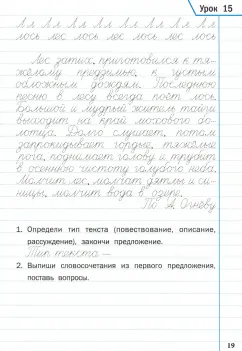 Урок 15
Л л Л л Л л Л л Л л Л л
лось лес лось лес лось лес лось
Лес затих, приготовился к тя-
жёлому предзимью, к густым
обложным дождям. Последнюю
песню в лесу всегда поёт лось.
Большой и мудрый житель тайги
выходит на край мохового бо-
лотца. Долго слушает, потом
запрокидывает гордые, тяжёлые
рога, поднимает голову и трубит
в осеннюю чистоту голубого неба.
Молчит лес, молчат дятлы и си-
ницы, молчит вода в озере.
По А. Огневу
1. Определи тип текста (повествование, описание,
рассуждение), закончи предложение.
Тип текста —
2. Выпиши словосочетания из первого предложения,
поставь вопросы.
19